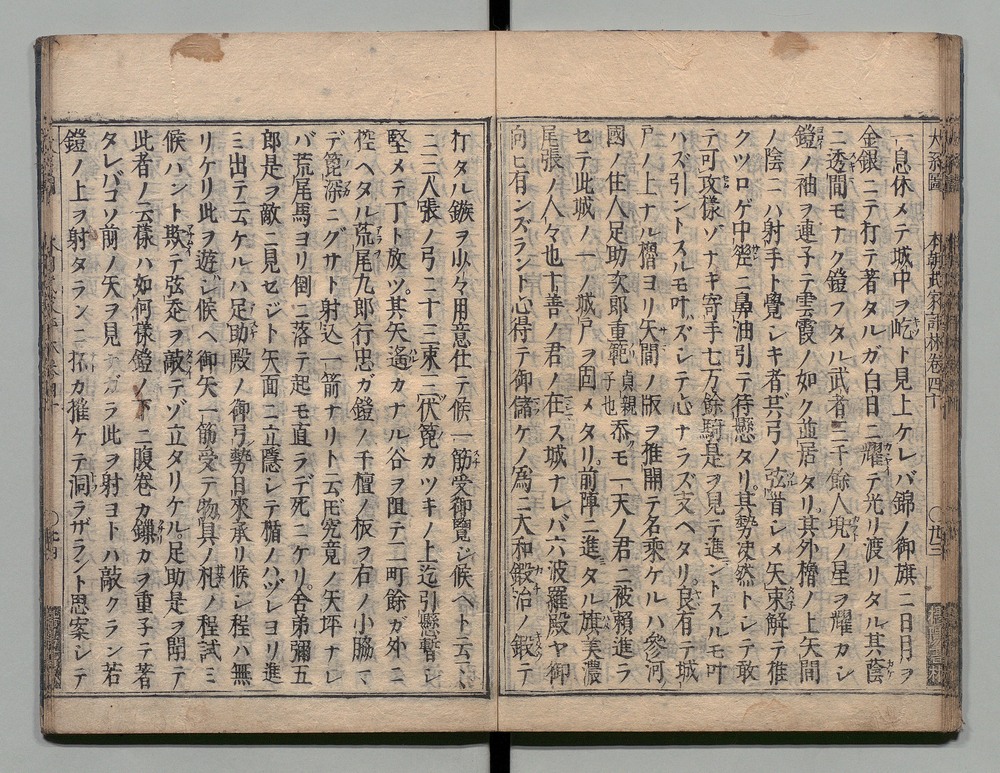 一息休メテ城中ヲ屹ト見上ケレバ錦ノ御旗ニ日月ヲ
金銀ニテ打テ著タルガ白日ニ耀テ光リ渡リタル其蔭
ニ透間モナク鎧フタル武者三千餘人甲ノ星ヲ耀カシ
鎧ノ袖ヲ連子テ雲霞ノ如ク並居タリ其外櫓ノ上矢間
ノ陰ニハ射手ト覺シキ者共弓ノ弦首シメ矢束解テ推
クツロゲ中差ニ鼻油引テ待懸タリ其勢决然トシテ敢
テ可攻樣ゾナキ寄手七万餘騎是ヲ見テ進ントスルモ叶
ハズ引ントスルモ叶ズシテ心ナラズ支ヘタリ良有テ城
戸ノ上ナル櫓ヨリ矢間ノ版ヲ推開テ名乘ケルハ參河
國ノ住人足助次郎重範貞親子也忝モ一天ノ君ニ被賴進ラ
セテ此城ノ一ノ城戸ヲ固メタリ前陣ニ進タル旗美濃
尾張ノ人々也ト善ノ君ノ在ス城ナレバ六波羅殿ヤ御
向ヒ有ンズラント心得テ御儲ケノ爲ニ大和鍛治ノ鍛テ
打タル鏃ヲ少々用意仕テ候一筋受御覽シ候ヘト云テ
三人張ノ弓ニ十三束三伏篦カツキノ上迄引懸暫シ
堅メテ丁ト放ツ其矢遙カナル谷ヲ阻テ二町餘ガ外ニ
控ヘタル荒尾九郎行忠ガ鎧ノ千檀ノ板ヲ右ノ小脇マ
デ篦深ニグサト射込一箭ナリト云𪜈究竟ノ矢坪ナレ
バ荒尾馬ヨリ倒ニ落テ起モ直ラデ死ニケリ舍弟彌五
郎是ヲ敵ニ見セジト矢面ニ立隱シテ楯ノハヅレヨリ進
ミ出テ云ケルハ足助殿ノ御弓勢日來承リ候シ程ハ無
リケリ此ヲ遊シ候ヘ御矢一筋受テ物具ノ札ノ程試ミ
候ハント欺テ弦走ヲ敲テゾ立タリケル足助是ヲ聞テ
此者ノ云樣ハ如何樣鎧ノ下ニ腹卷カ鏁カヲ重子テ著
タレバコソ前ノ矢ヲ見ナガラ此ヲ射ヨトハ敲クラン若
鎧ノ上ヲ射タランニ篦カ摧ケテ洞ラザラント思案シテ